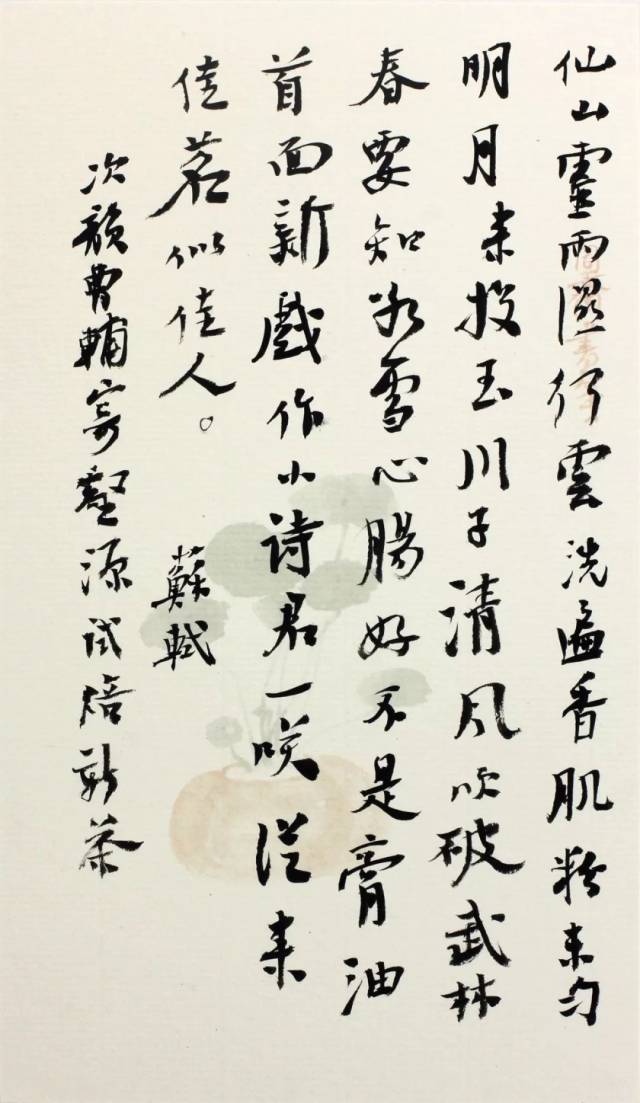 仙山靈雨濕行雲洗遍香肌粉未匀
明月来投玉川子清風吹破武林
春要知冰雪心腸好不是膏油
首面新戲作小詩君一咲從来
佳茗似佳人。
蘇軾
次韻曹輔寄壑源試焙新茶